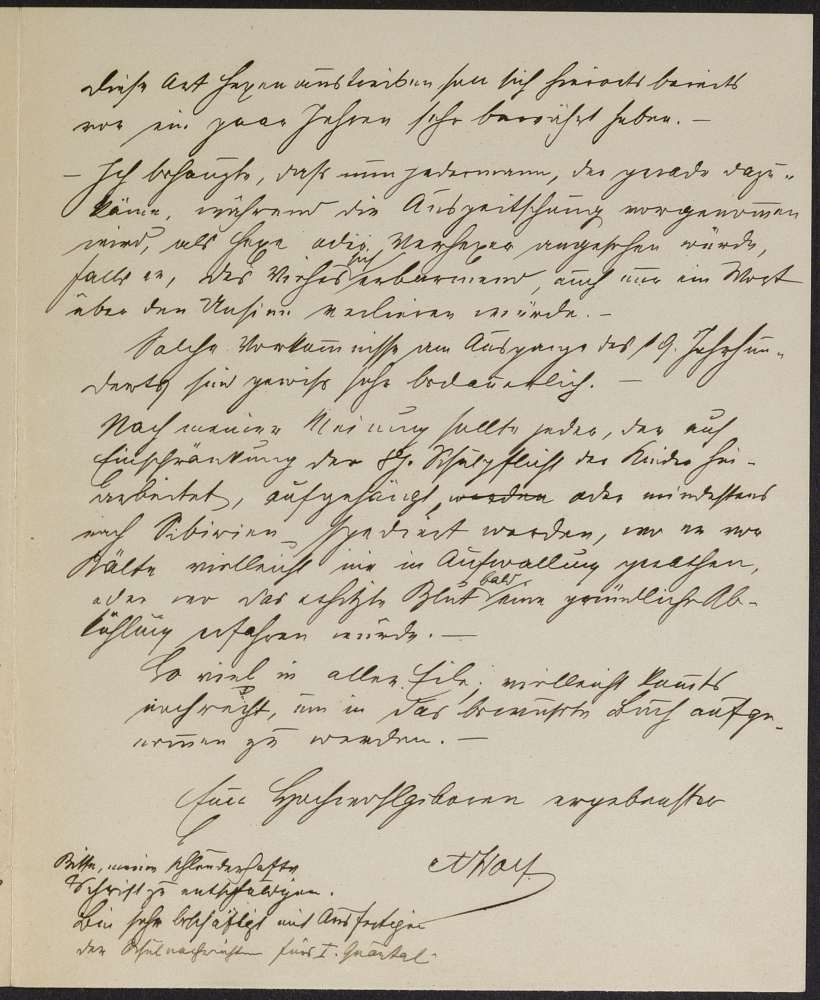 Diese Art Hexenaustreiben soll sich hierorts bereits
vor ein paar Jahren sehr bewährt haben. —
— Ich behaupte, dass nun jedermann, der gerade dazu-
käme, während die Auspeitschung vorgenommen
wird, als Hexe oder Verhexer angesehen würde,
falls er, des Viehes sich erbarmend, auch nur ein Wort
über den Unsinn verlieren würde. —
Solche Vorkommnisse am Ausgange des 19. Jahrhun-
derts sind gewiss sehr bedauerlich. —
Nach meiner Meinung sollte jeder, der auf
Einschränkung der 8j. Schulpflicht der Kinder hin-
arbeitet, aufgehängt, werden oder mindestens
nach Sibirien spediert werden, wo er vor
Kälte vielleicht nie in Aufwallung gerathen,
oder wo das erhitzte Blut bald eine gründliche Ab-
kühlung erfahren würde. —
So viel in aller Eile; vielleicht kommts
noch recht, um in das bewusste Buch aufge-
nommen zu werden. —
Euer Hochwohlgeboren ergebenster
Bitte, meine schleuderhafte
Schrift zu entschuldigen.
Bin sehr beschäftigt mit Ausfertigen
der Schulnachrichten fürs I. Quartal.